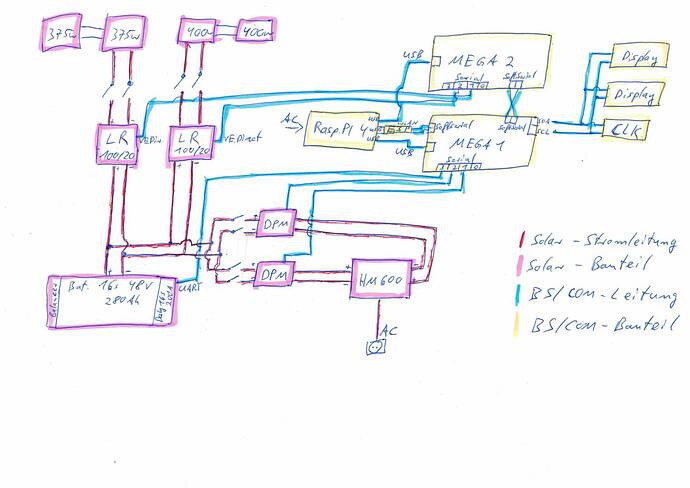 375W
375W
400W
400W
USB
MEGA 2
Serial
3 2 1 0
SoftSerial
1
Display
Display
CLK
SDA
SCL
AC
Rasp.PI 4
USB
SoftSerial
MEGA 1
Serial
3 2 1 0
SoftSerial
LR
100/20
VEDir.
LR
100/20
VEDirect
DPM
DPM
HM600
AC
Balancer
Bat. 16s 48V
280Ah
Daly 16s
200A
UART
Solar - Stromleitung
Solar - Bauteil
BS/COM - Leitung
BS/COM - Bauteil